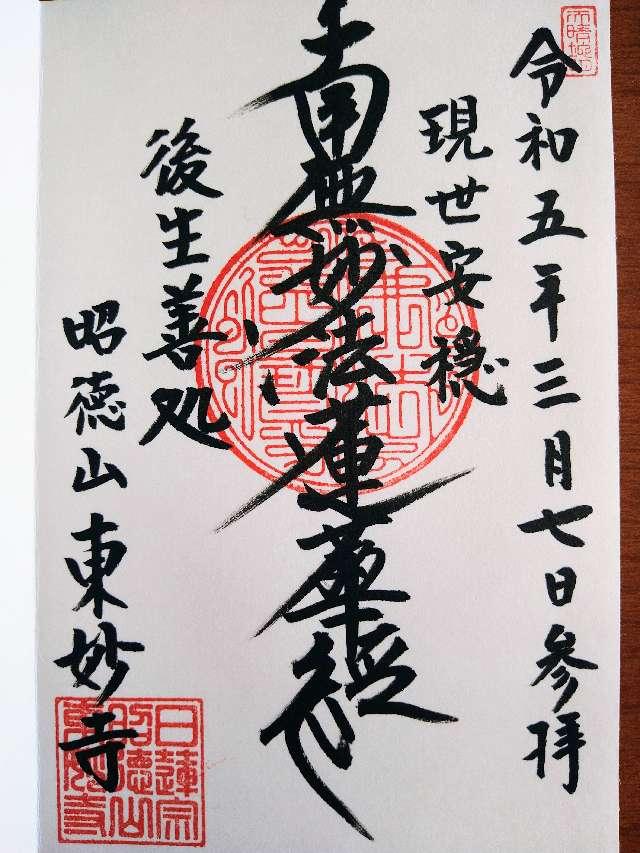 令和五年三月七日参拝
現世安穏
南無妙法蓮華経
後生善処
昭徳山東妙寺
日蓮宗
昭徳山
東妙寺